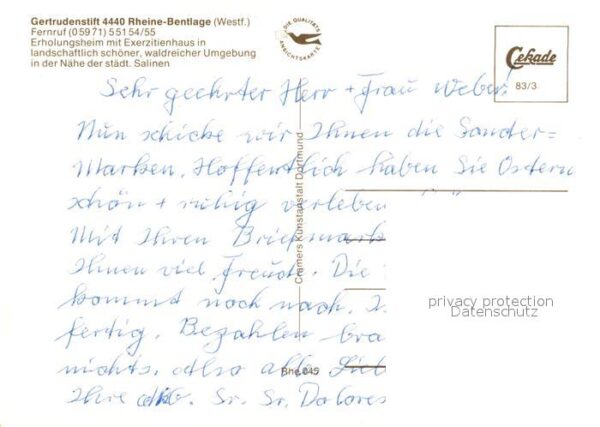 Gertrudenstift 4440 Rheine-Bentlage (Westf.)
Fernruf (05971) 55154/55
Erholungsheim mit Exerzitienhaus in
landschaftlich schöner, waldreicher Umgebung
in der Nähe der städt. Salinen
DIE QUALITÄTS
ANSICHTSKARTE
Cekade
83/3
Sehr geehrter Herr + Frau Weber!
Nun schicke wir Ihnen die Sonder=
Marken. Hoffentlich haben Sie Ostern
schön + ruhig verleben
Mit Ihren Briefmark
Ihnen viel Freude. Die
kommt noch nach.
fertig. Bezahlen bra
nichts. also alle Lieb
Ihre Sr. Sr. Dolores
Cramers Kunstanstalt Dortmund
Rhe 045
privacy protection
Datenschutz